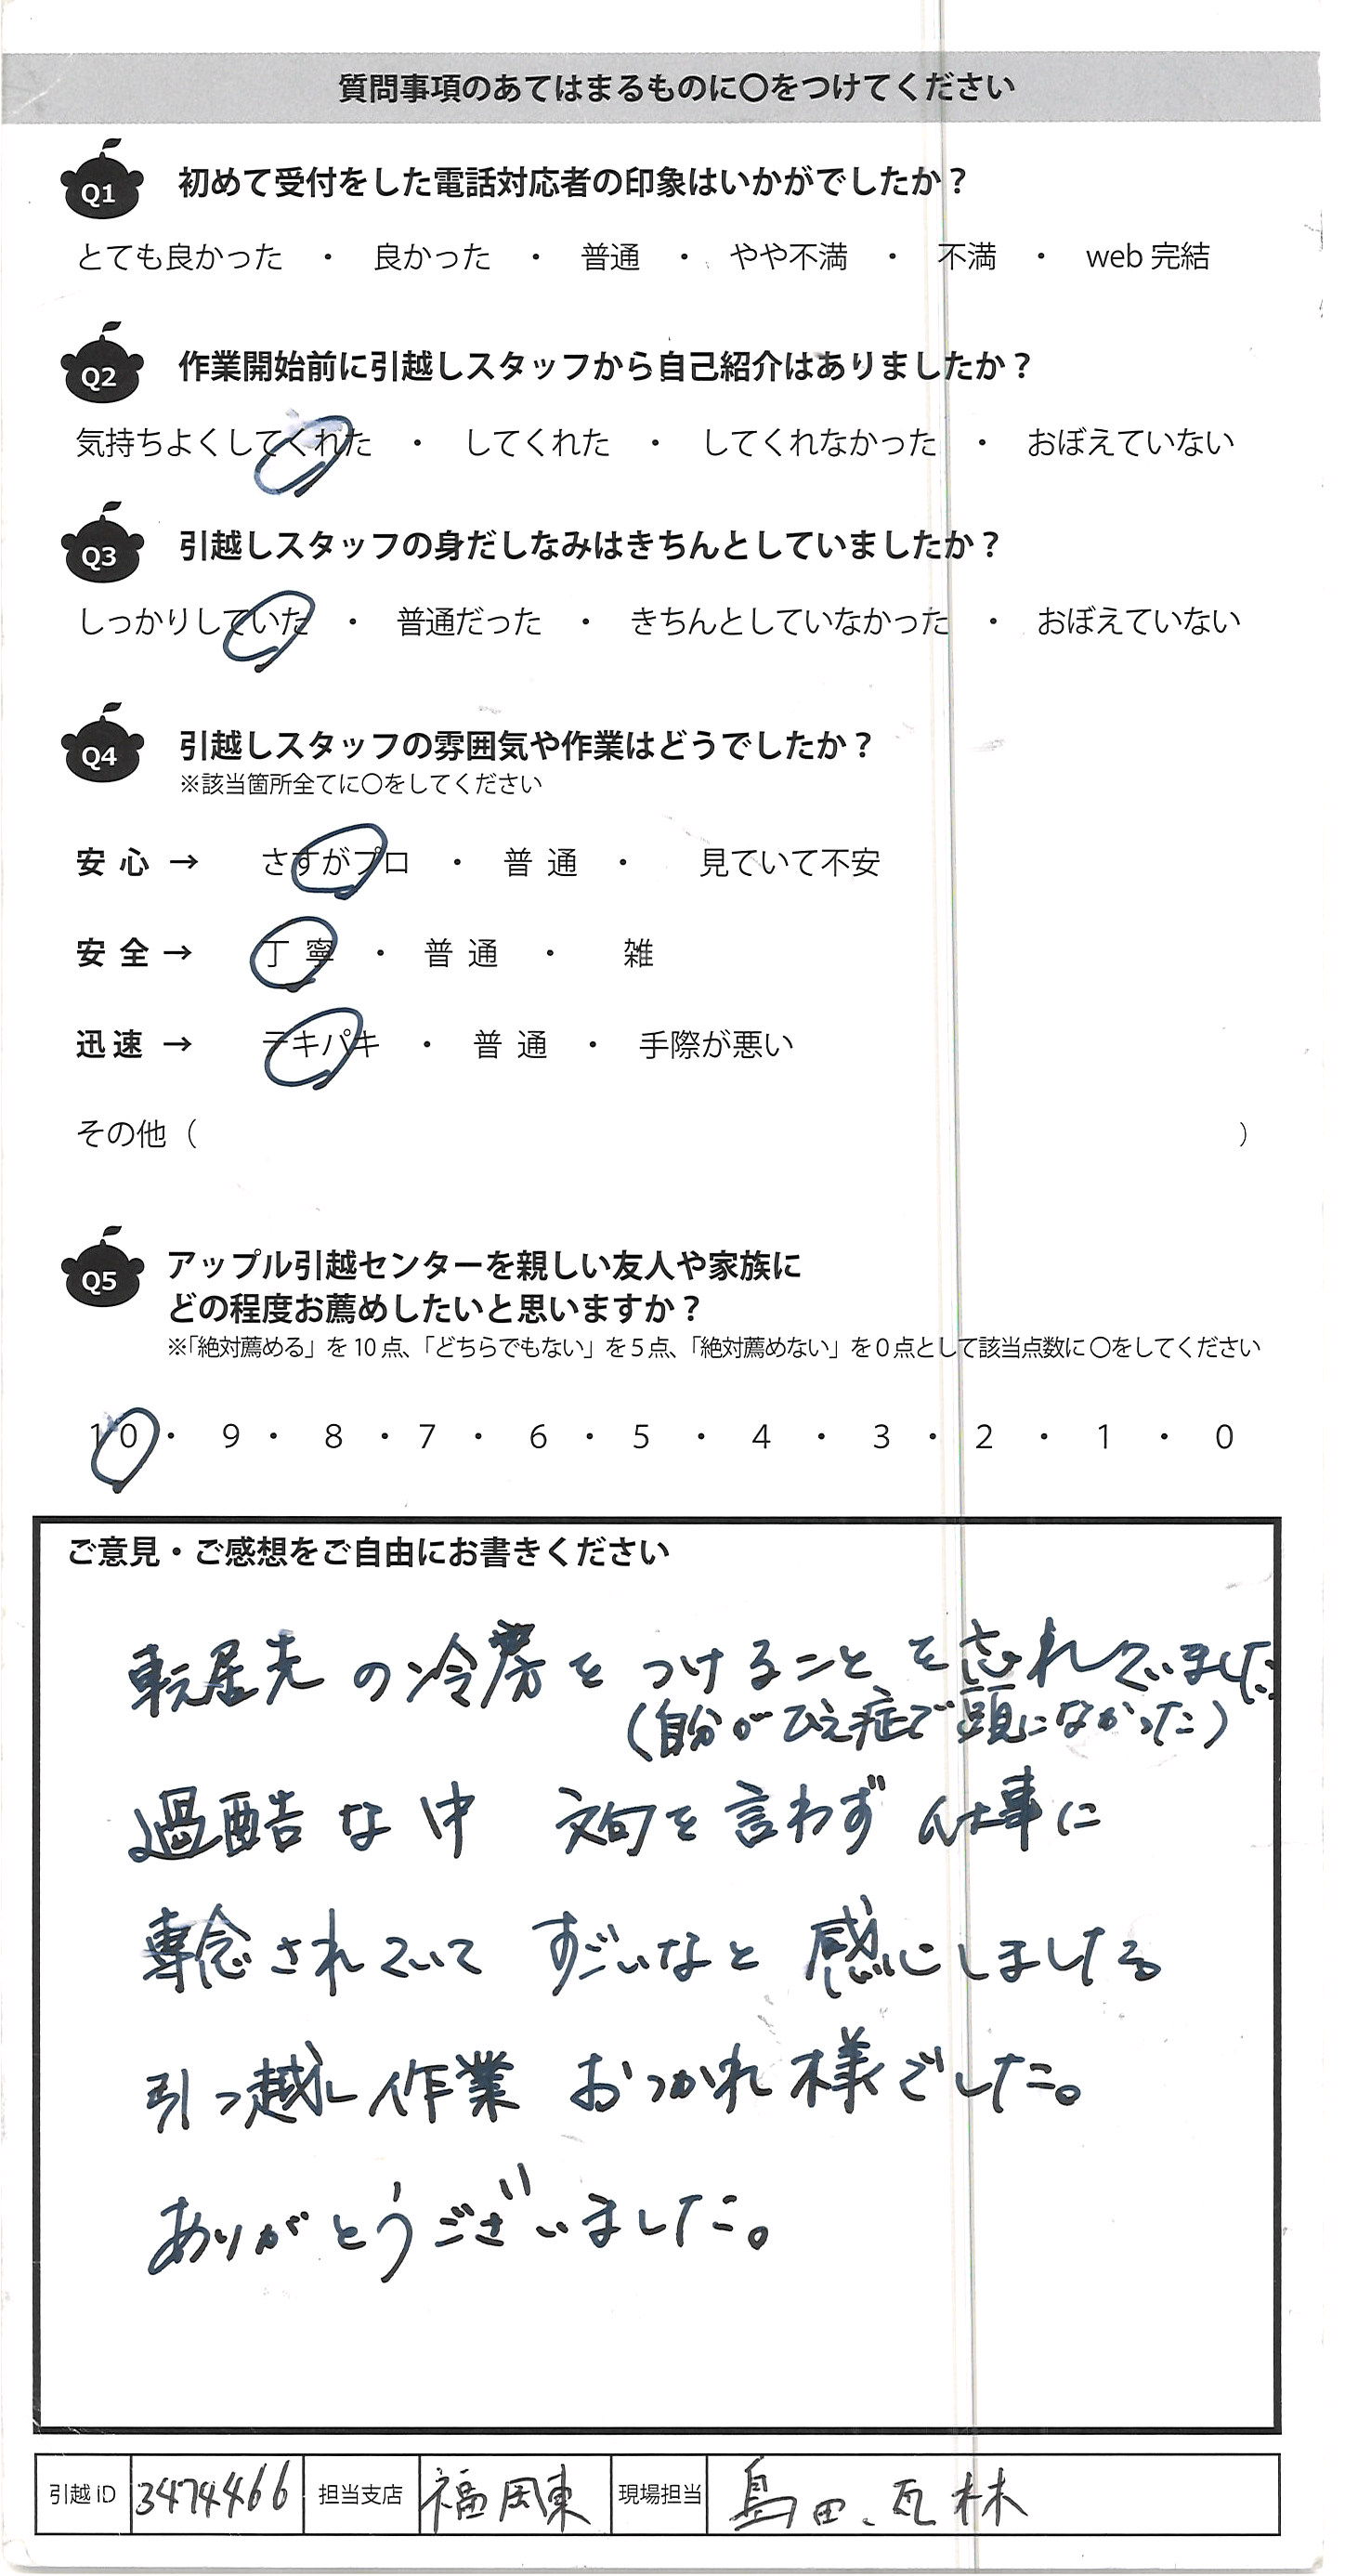 質問事項のあてはまるものに〇をつけてください
Q1 初めて受付をした電話対応者の印象はいかがでしたか？
とても良かった ・ 良かった ・ 普通 ・ やや不満 ・ 不満 ・ web 完結
Q2 作業開始前に引越しスタッフから自己紹介はありましたか？
気持ちよくしてくれた ・ してくれた ・ してくれなかった ・ おぼえていない
Q3 引越しスタッフの身だしなみはきちんとしていましたか？
しっかりしていた ・ 普通だった ・ きちんとしていなかった ・ おぼえていない
Q4 引越しスタッフの雰囲気や作業はどうでしたか？
※該当箇所全てに〇をしてください
安心 → さすがプロ ・ 普通 ・ 見ていて不安
安全 → 丁寧 ・ 普通 ・ 雑
迅速 → テキパキ ・ 普通 ・ 手際が悪い
その他（ ）
Q5 アップル引越センターを親しい友人や家族に
どの程度お薦めしたいと思いますか？
※「絶対薦める」を 10 点、「どちらでもない」を 5 点、「絶対薦めない」を 0 点として該当点数に 〇をしてください
10 ・ 9 ・ 8 ・ 7 ・ 6 ・ 5 ・ 4 ・ 3 ・ 2 ・ 1 ・ 0
ご意見・ご感想をご自由にお書きください
転居先の冷房をつけることを忘れていました
（自分がひえ症で頭になかった）
過酷な中 文句を言わず 仕事に
専念されていて すごいなと 感心しました。
引っ越し作業 おつかれ様でした。
ありがとうございました。
引越 iD 3474466 担当支店 福岡東 現場担当 島田、瓦林